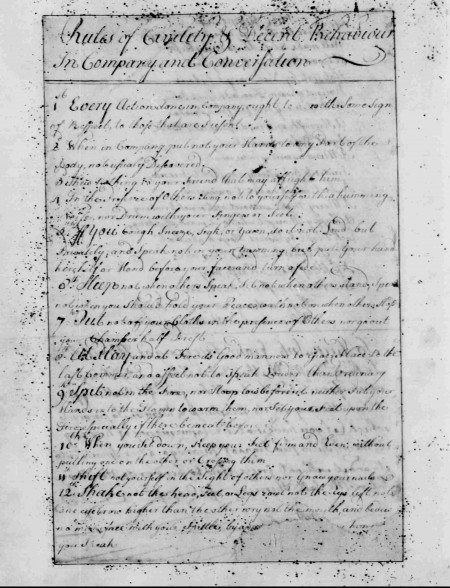 Rules of Civility & Decent Behaviour
In Company and Conversation
1st Every Action done in Company, ought to be with Some Sign
of Respect, to those that are Present.
2 When in Company, put not your Hands to any Part of the
Body, not usualy Discovered.
3 Shew Nothing to your Friend that may affright him
4 In the Presence of Others Sing not to yourself with a humming
Noise, nor Drum with your Fingers or Feet.
5 If You Cough, Sneeze, Sigh, or Yawn, do it not Loud but
Privately; and Speak not in your Yawning, but put Your hand
before your face and turn aside
6 Sleep not when others Speak, Sit not when others stand, Speak
not when you Should hold your Peace, walk not on when others Stop
7th Put not off your Cloths in the presence of Others, nor go out
your Chamber half Drest
8 At Play and at Fire its Good manners to Give Place to the
last Commer, and affect not to Speak Louder than Ordinary
9th Spit not in the Fire, nor Stoop low before it neither Put your
Hands into the Flames to warm them, nor Set your Feet upon the
Fire especially if there be meat before it
10th When you Sit down, Keep your Feet firm and Even, without
putting one on the other or Crossing them
11 Shift not yourself in the Sight of others nor Gnaw your nails
12 Shake not the head, Feet, or Legs rowl not the Eys lift not
one eyebrow higher than the other wry not the mouth, and bedew
no mans face with your Spittle, by
you Speak